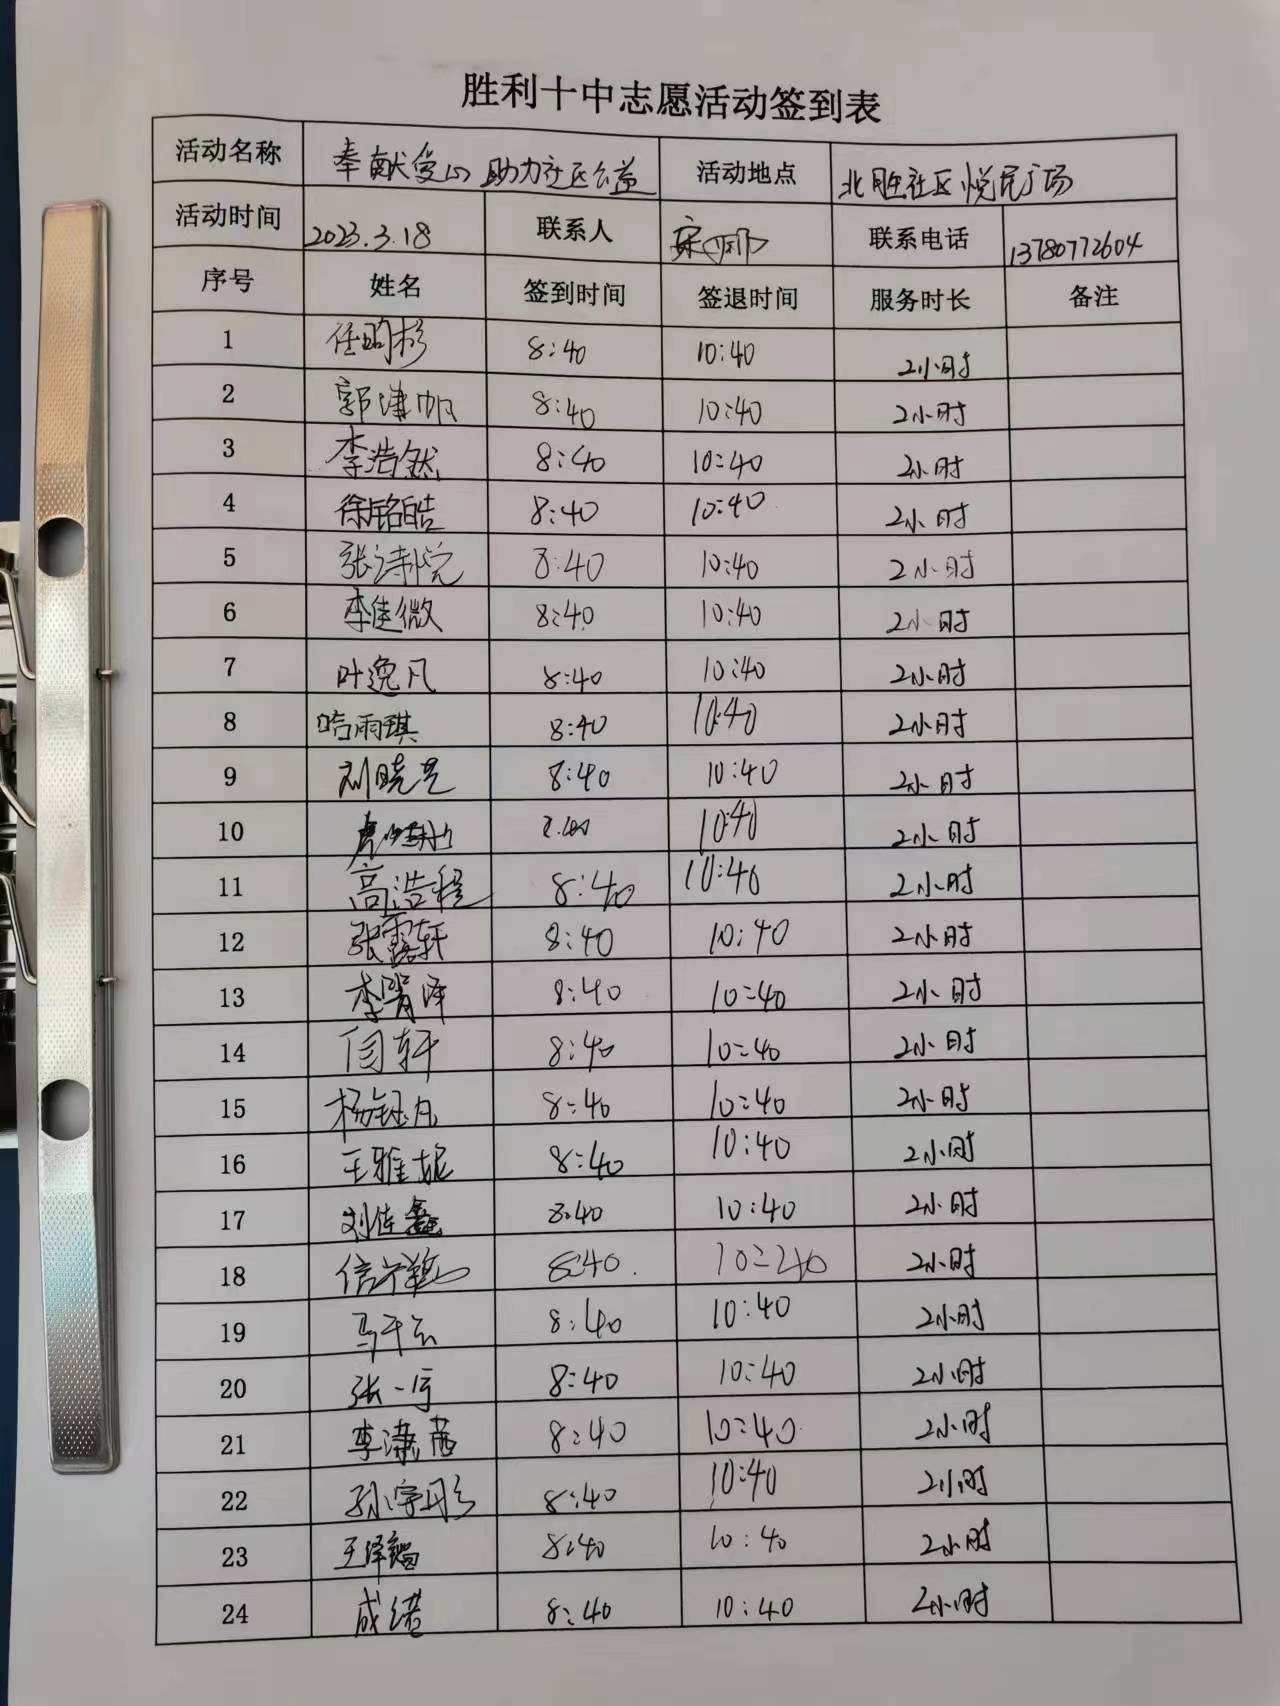 胜利十中志愿活动签到表
活动名称 奉献爱心 助力社区公益 活动地点 北胜社区悦民广场
活动时间 2023.3.18 联系人 联系电话 13780772604
序号 姓名 签到时间 签退时间 服务时长 备注
1 任昀杉 8:40 10:40 2小时
2 郭津帆 8:40 10:40 2小时
3 李浩然 8:40 10:40 2小时
4 徐铭皓 8:40 10:40 2小时
5 张诗悦 8:40 10:40 2小时
6 李佳微 8:40 10:40 2小时
7 叶逸凡 8:40 10:40 2小时
8 哈雨琪 8:40 10:40 2小时
9 刘晓艺 8:40 10:40 2小时
10 10:40 2小时
11 高浩程 8:40 10:40 2小时
12 张露轩 8:40 10:40 2小时
13 8:40 10:40 2小时
14 闫轩 8:40 10:40 2小时
15 杨钰凡 8:40 10:40 2小时
16 王雅妮 8:40 10:40 2小时
17 刘佳鑫 8:40 10:40 2小时
18 8:40 10:40 2小时
19 马千云 8:40 10:40 2小时
20 张一宁 8:40 10:40 2小时
21 李潇茜 8:40 10:40 2小时
22 孙宇彤 8:40 10:40 2小时
23 8:40 10:40 2小时
24 成绪 8:40 10:40 2小时